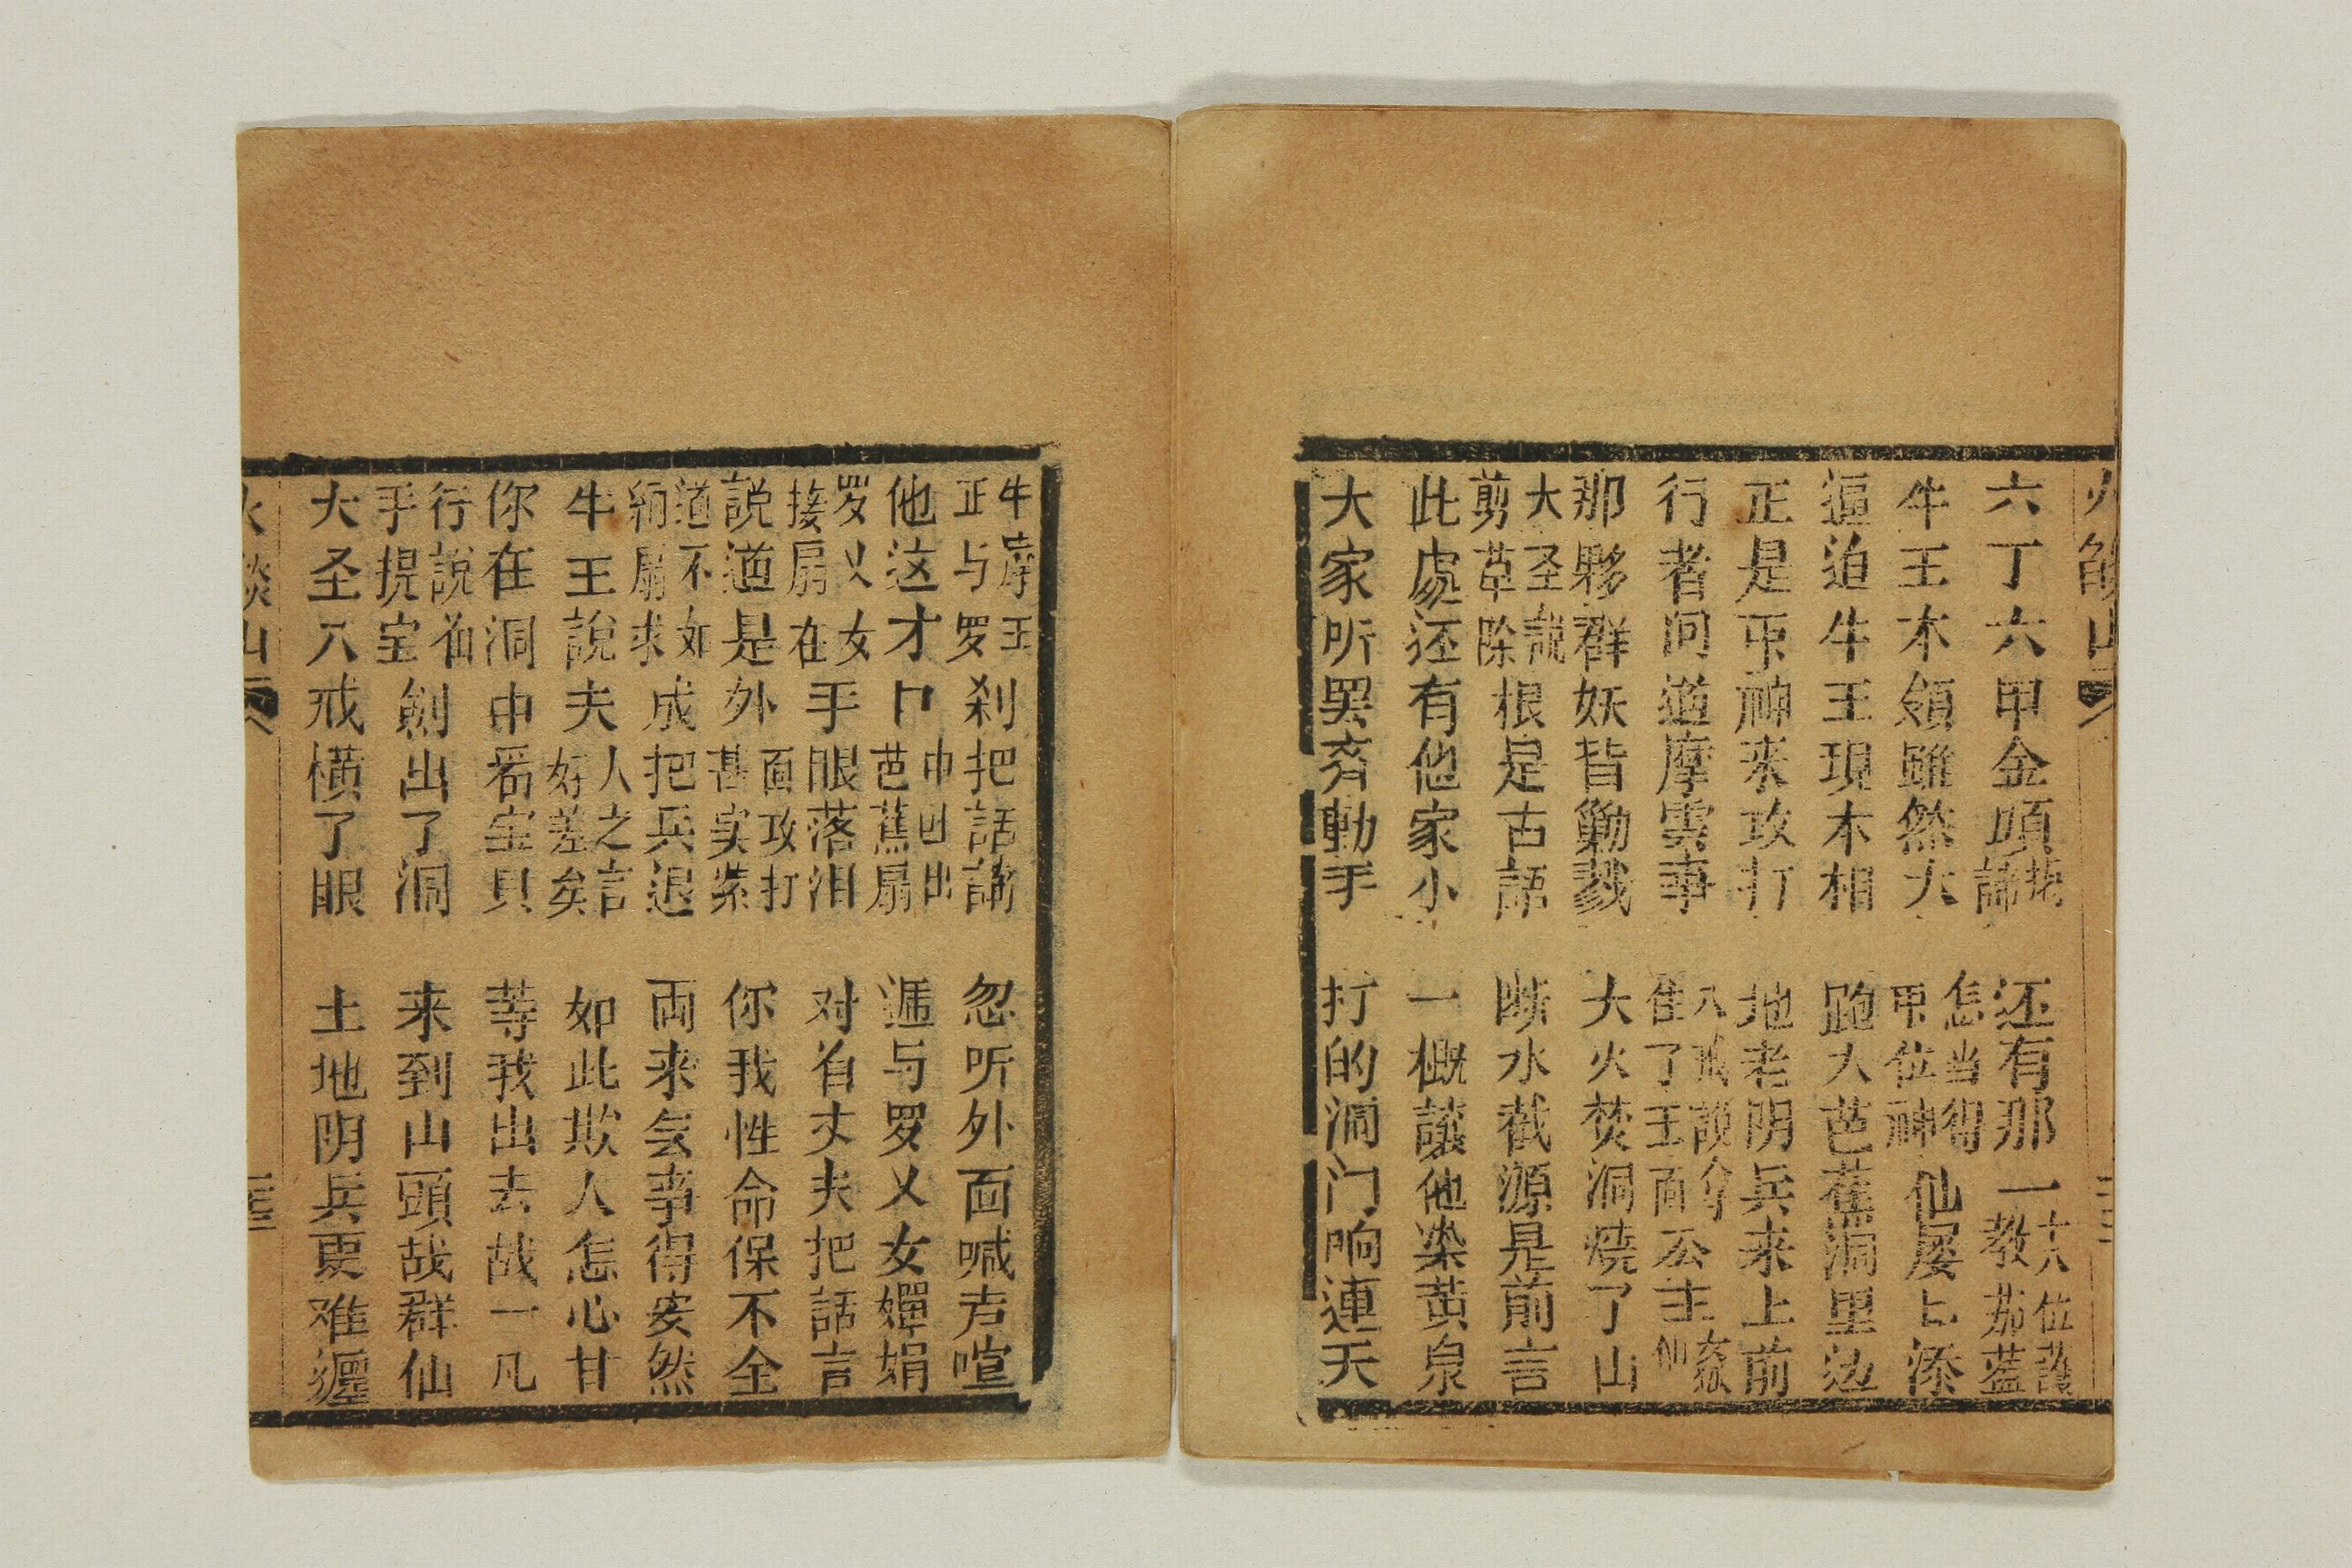 火焰山
六丁六甲金頭揭諦 还有那一十八位護教茄蓝
牛王木領雖然大 怎当得甲位神仙屡上添
逼迫牛王現木相 跑入芭蕉洞里边
正是币神来攻打 地老阴兵来上前
行者问道摩雲事 八戒說拿住了王面公主
那夥群妖皆勦戮 大火焚洞燒了山
大圣説剪草除根是古語 断水截源是前言
此處还有他家小 一概議他染黄泉
大家听罢齐動手 打的洞门响連天
牛摩王正与罗刹把話講 忽听外面喊声喧
他这才口中囬出芭蕉扇 逓与罗乂女嬋娟
罗乂女接扇在手眼落泪 对着丈夫把話言
説道是外面攻打甚实紧 你我性命保不全
道不如扇求成把兵退 両来無事得安然
牛王說夫人之言好差矣 如此欺人怎心甘
你在洞中看宝貝 等我出去战一凡
行說着手提宝劍出了洞 来到山頭战群仙
大圣八戒横了眼 土地阴兵更难纏
火燄山